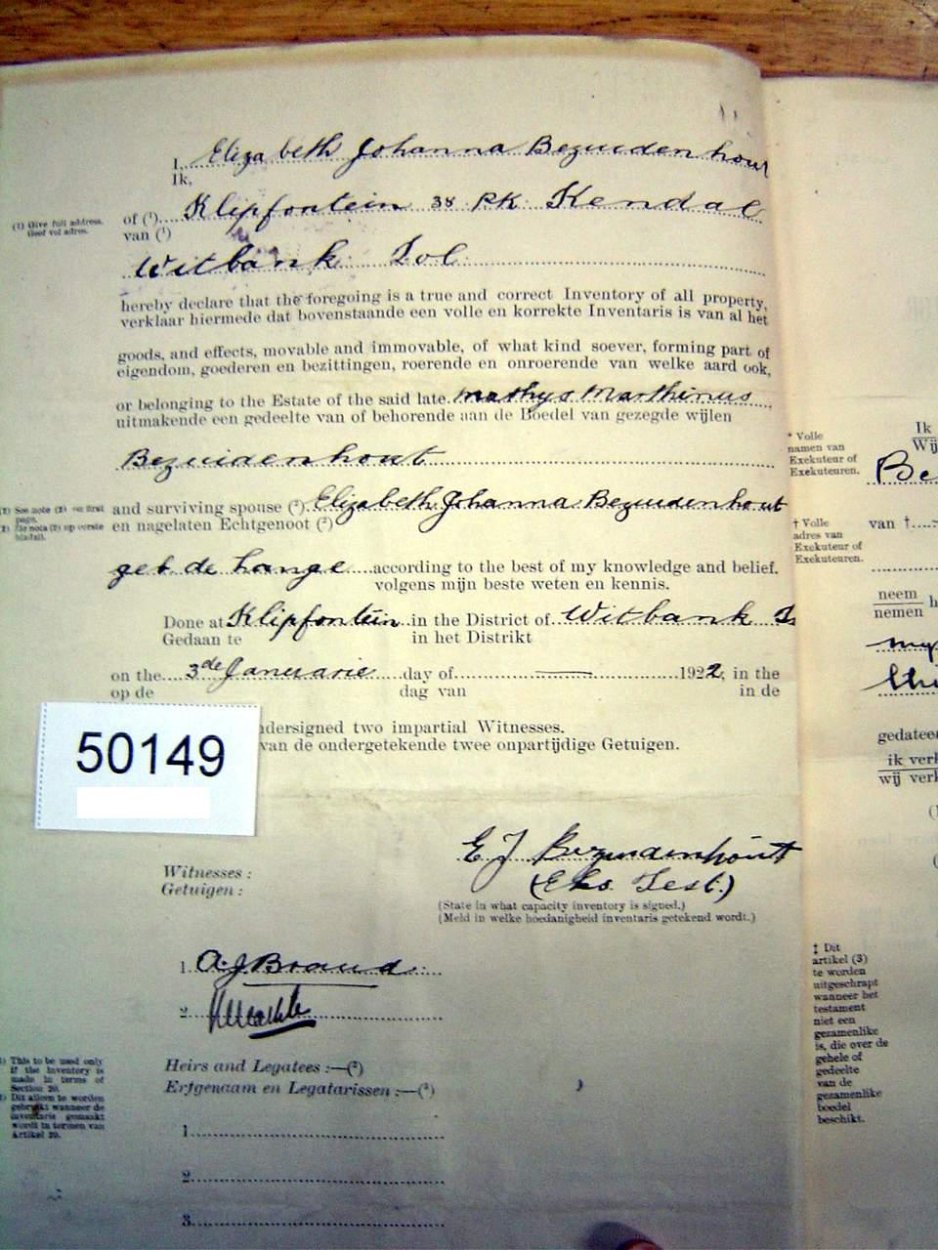 I, Elizabeth Johanna Bezuidenhout
Ik,
(1) Give full address.
Geef vol adres.
of (1) Klipfontein 38 PK Kendal
van (1)
Witbank
hereby declare that the foregoing is a true and correct Inventory of all property,
verklaar hiermede dat bovenstaande een volle en korrekte Inventaris is van al het
goods, and effects, movable and immovable, of what kind soever, forming part of
eigendom, goederen en bezittingen, roerende en onroerende van welke aard ook,
or belonging to the Estate of the said late Mathys Marthinus
uitmakende een gedeelte van of behorende aan de Boedel van gezegde wijlen
Bezuidenhout
(2) See note (2) on first
page.
(2) Zie nota (2) op eerste
bladzij.
and surviving spouse (2) Elizabeth Johanna Bezuidenhout
en nagelaten Echtgenoot (2)
geb de Lange according to the best of my knowledge and belief.
volgens mijn beste weten en kennis.
Done at Klipfontein in the District of Witbank
Gedaan te in het Distrikt
on the 3de Januarie day of — 1922, in the
op de dag van in de
ndersigned two impartial Witnesses.
van de ondergetekende twee onpartijdige Getuigen.
50149
E J Bezuidenhout
(Eks Test.)
Witnesses :
Getuigen :
(State in what capacity inventory is signed.)
(Meld in welke hoedanigheid inventaris getekend wordt.)
1. A.J. Brand
2.
Heirs and Legatees :—(3)
Erfgenaam en Legatarissen :—(3)
) This to be used only
if the Inventory is
made in terms of
Section 29.
) Dit alleen te worden
gebruikt wanneer de
inventaris gemaakt
wordt in termen van
Artikel 29.
1.
2.
3.
* Volle
namen van
Exekuteur of
Exekuteuren.
Ik
Wij
Be
† Volle
adres van
Exekuteur of
Exekuteuren.
van †
neem
nemen
my
gedateer
ik verk
wij verk
‡ Dit
artikel (3)
te worden
uitgeschrapt
wanneer het
testament
niet een
gezamenlike
is, die over de
gehele of
gedeelte
van de
gezamenlike
boedel
beschikt.